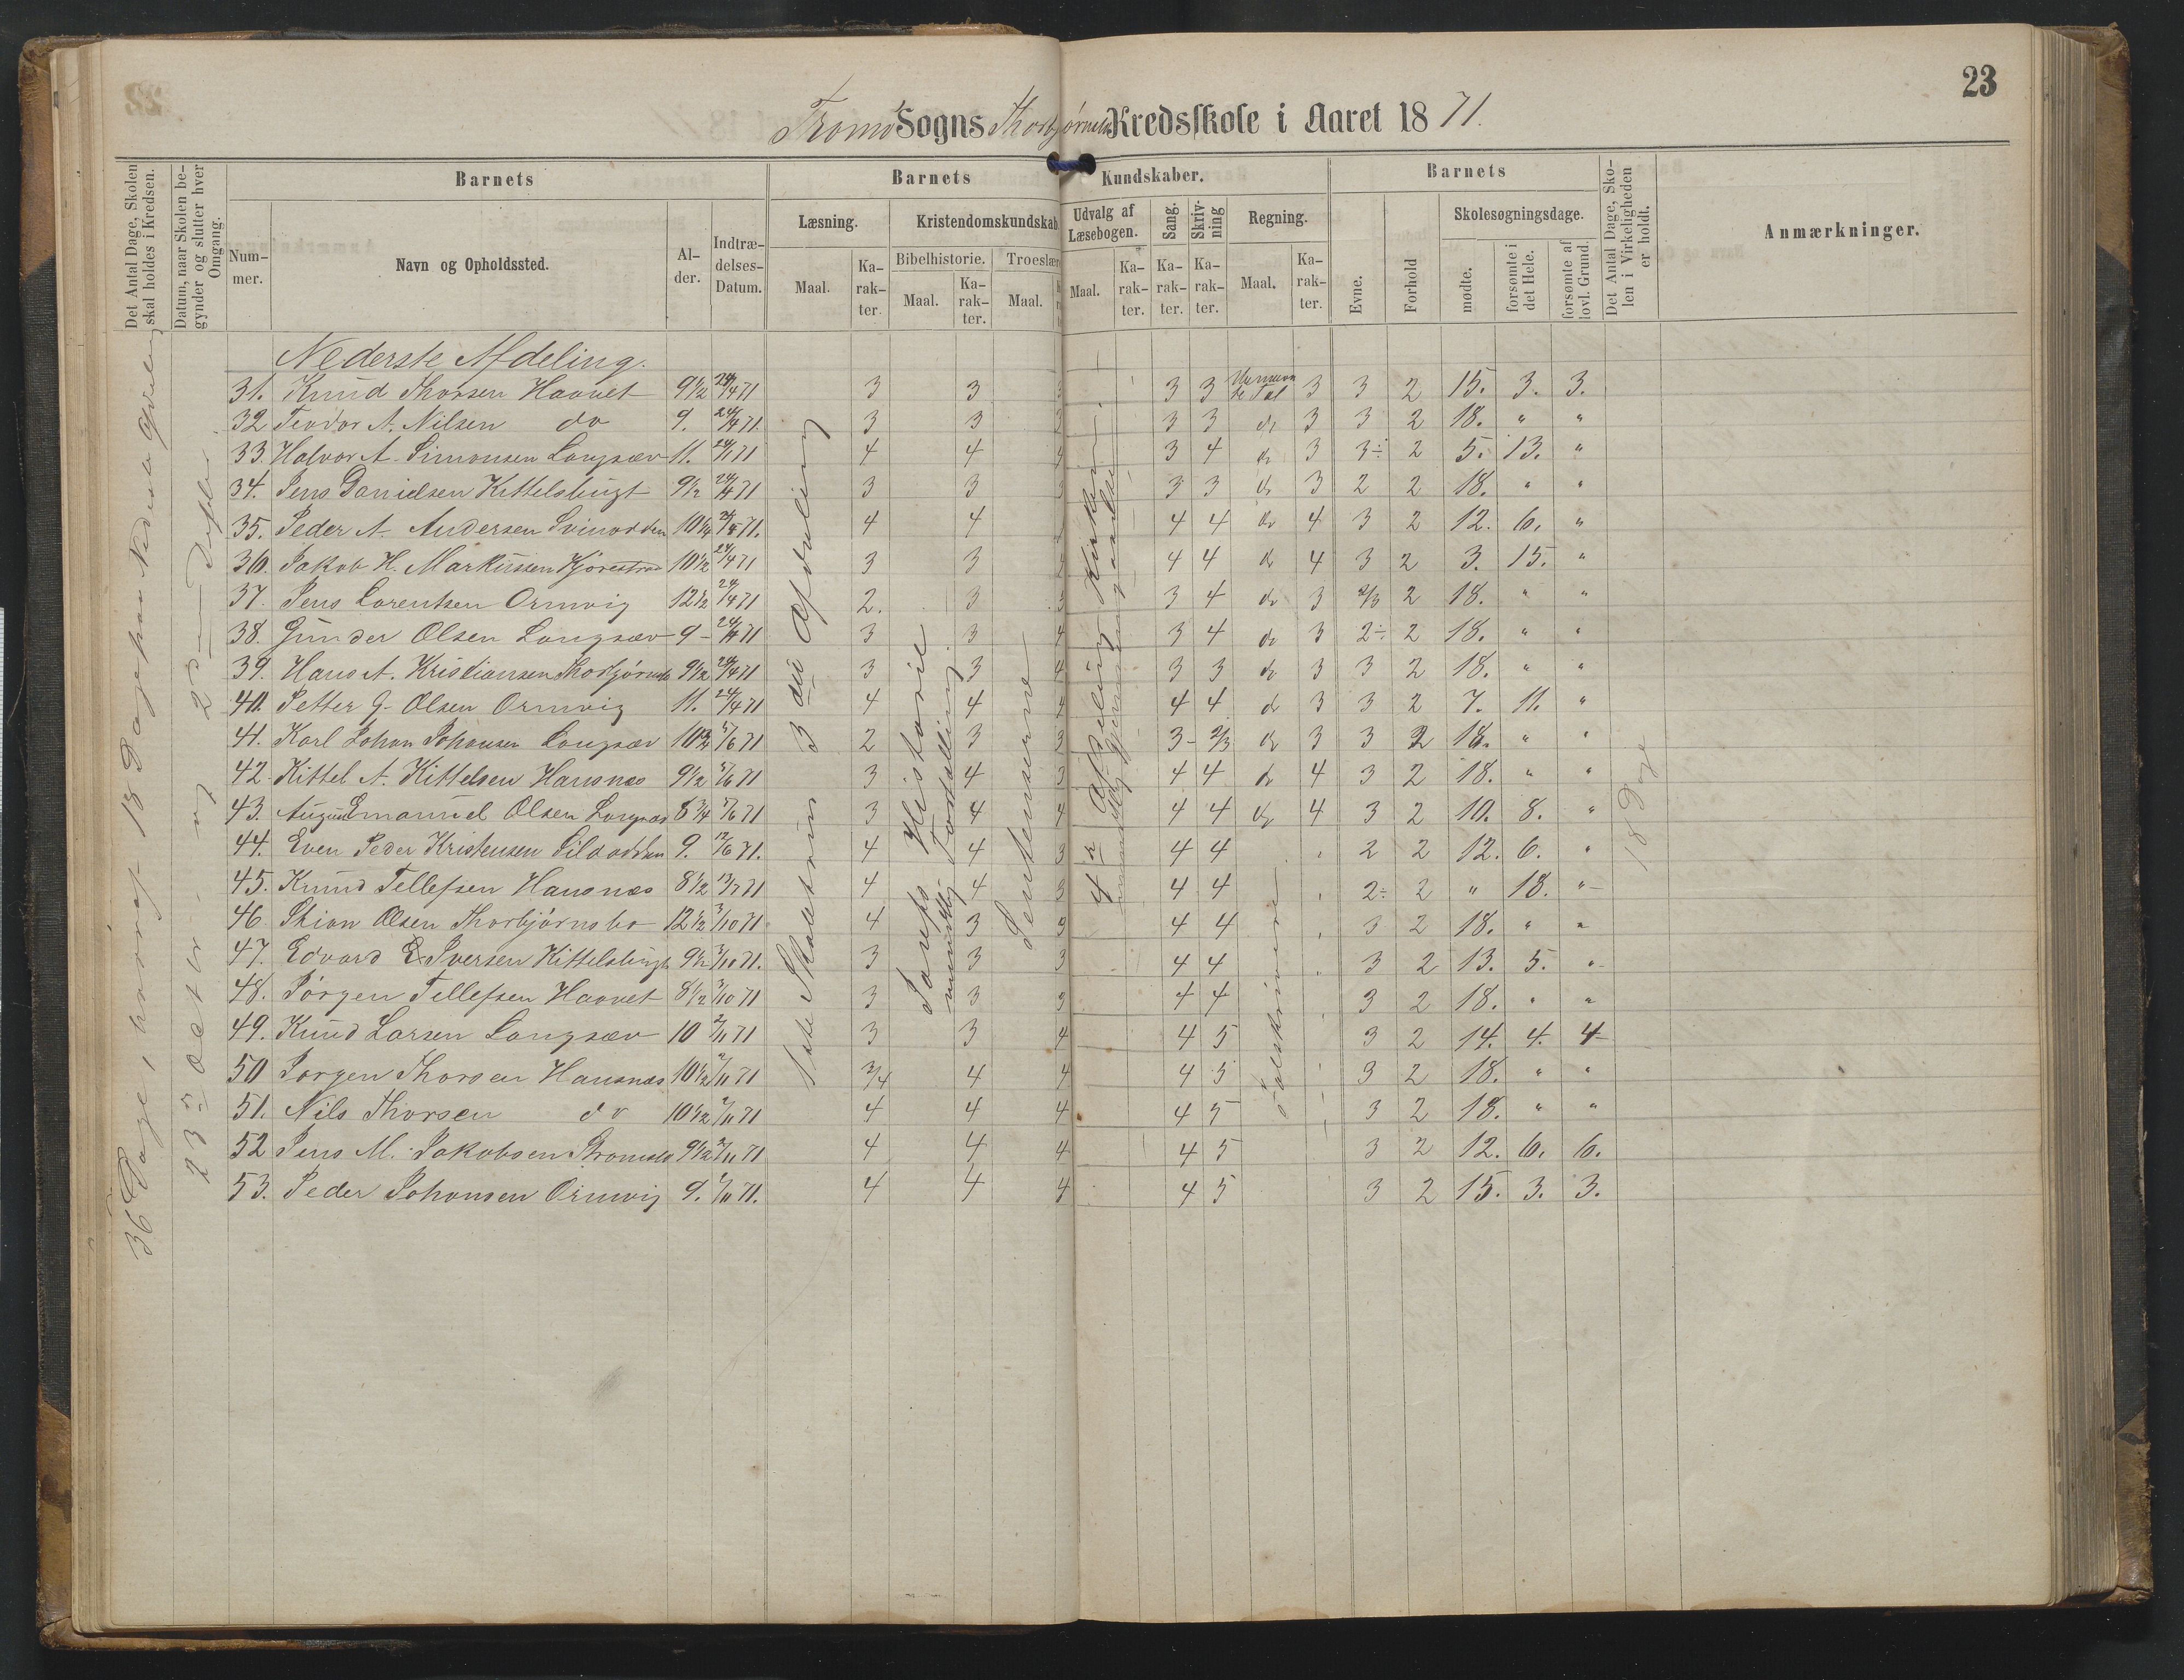 23
Tromø Sogns Thorbjørnsbo Kredsskole i Aaret 1871.
Det Antal Dage, Skolen skal holdes i Kredsen.
Datum, naar Skolen begynder og slutter hver Omgang.
Barnets
Barnets Kundskaber.
Barnets
Det Antal Dage, Skolen i Virkeligheden er holdt.
Anmærkninger.
Nummer.
Navn og Opholdssted.
Alder.
Indtrædelses-Datum.
Læsning.
Kristendomskundskab.
Udvalg af Læsebogen.
Sang.
Skrivning
Regning.
Evne.
Forhold
Skolesøgningsdage.
Bibelhistorie.
Troeslære
Maal.
Karakter.
Maal.
Karakter.
Maal.
Maal.
Karakter.
Karakter.
Karakter.
Maal.
Karakter.
mødte.
forsømte i det Hele.
forsømte af lovl. Grund.
Nederste Afdeling.
31. Knud Thorsen Havnet 9 1/2 24/4 71 3 3 3 3 3 Ubenævnte Tal 3 3 2 15. 3. 3.
32 Teodor A. Nilsen do 9. 24/4 71. 3 3 3 3 3 do 3 3 2 18. " "
33. Halvor A. Simonsen Longsæv 11. 24/4 71 4 4 4 3 4 do 3 3÷ 2 5. 13. "
34. Jens Danielsen Kittelsbugt 9 1/2 24/4 71 3 3 3 3 3 do 3 2 2 18. " "
35. Peder A. Andersen Svinodden 10 1/4 24/4 71. 4 4 4 4 do 4 3 2 12. 6. "
36. Jakob H. Markussen Kjørestrad 10 1/2 24/4 71 3 3 4 4 do 4 3 2 3. 15. "
37. Jens Lorentsen Ormvig 12 1/2 24/4 71 2. 3 3 3 4 do 3 2/3 2 18. " "
38. Gunder Olsen Longsæv 9 - 24/4 71 3 3 4 3 4 do 3 2÷ 2 18. " "
39. Hans A. Kristiansen Thorbjørnsb 9 1/2 24/4 71 3 3 4 3 3 do 3 3 2 18. " "
40. Petter G. Olsen Ormvig 11. 24/4 71 4 4 4 4 4 do 3 3 2 7. 11. "
41. Karl Johan Johansen Longsæv 10 3/4 5/6 71 2 3 3 3- 2/3 do 3 3 2 18. " "
42. Kittel A. Kittelsen Hansnæs 9 1/2 5/6 71 3 4 3 4 4 do 4 3 2 18. " "
43. August Emanuel Olsen Longsæv 8 3/4 5/6 71 3 4 4 4 4 do 4 3 2 10. 8. "
44. Even Peder Kristensen Sildodden 9. 12/6 71. 4 4 3 4 4 2 2 12. 6. "
45. Knud Tellefsen Hansnæs 8 1/2 13/7 71 4 4 3 4 4 2÷ 2 " 18. "
46. Stian Olsen Thorbjørnsbo 12 1/2 3/10 71 4 3 3 4 4 3 2 18. " "
47. Edvard E Iversen Kittelsbugt 9 1/2 3/10 71. 3 3 3 4 4 3 2 13. 5. "
48. Jørgen Tellefsen Havnet 8 1/2 3/10 71 3 3 3 4 4 3 2 18. " "
49. Knud Larsen Longsæv 10 2/11 71 3 3 4 4 5 3 2 14. 4. 4
50 Jørgen Thorsen Hansnæs 10 1/2 2/11 71 3/4 4 4 4 5 3 2 18. " "
51. Nils Thorsen do 10 1/2 2/11 71 4 4 4 4 5 3 2 18. " "
52 Jens M. Jakobsen 9 1/2 2/11 71 4 4 4 4 5 3 2 12. 6. 6.
53. Peder Johansen Ormvig 9. 2/11 71. 4 4 4 4 5 3 2 15. 3. 3.
36 Dage, hvoraf 18 Dage paa Nederste Afdeling
23de Octbr - og 23de Desbr.
3die Afdeling
Historie
mundtlig Fortælling
Sentenserne
4de Afdeling Kirken
mundtlig Gjennemgaaelse
Talskrivning
18 Dage